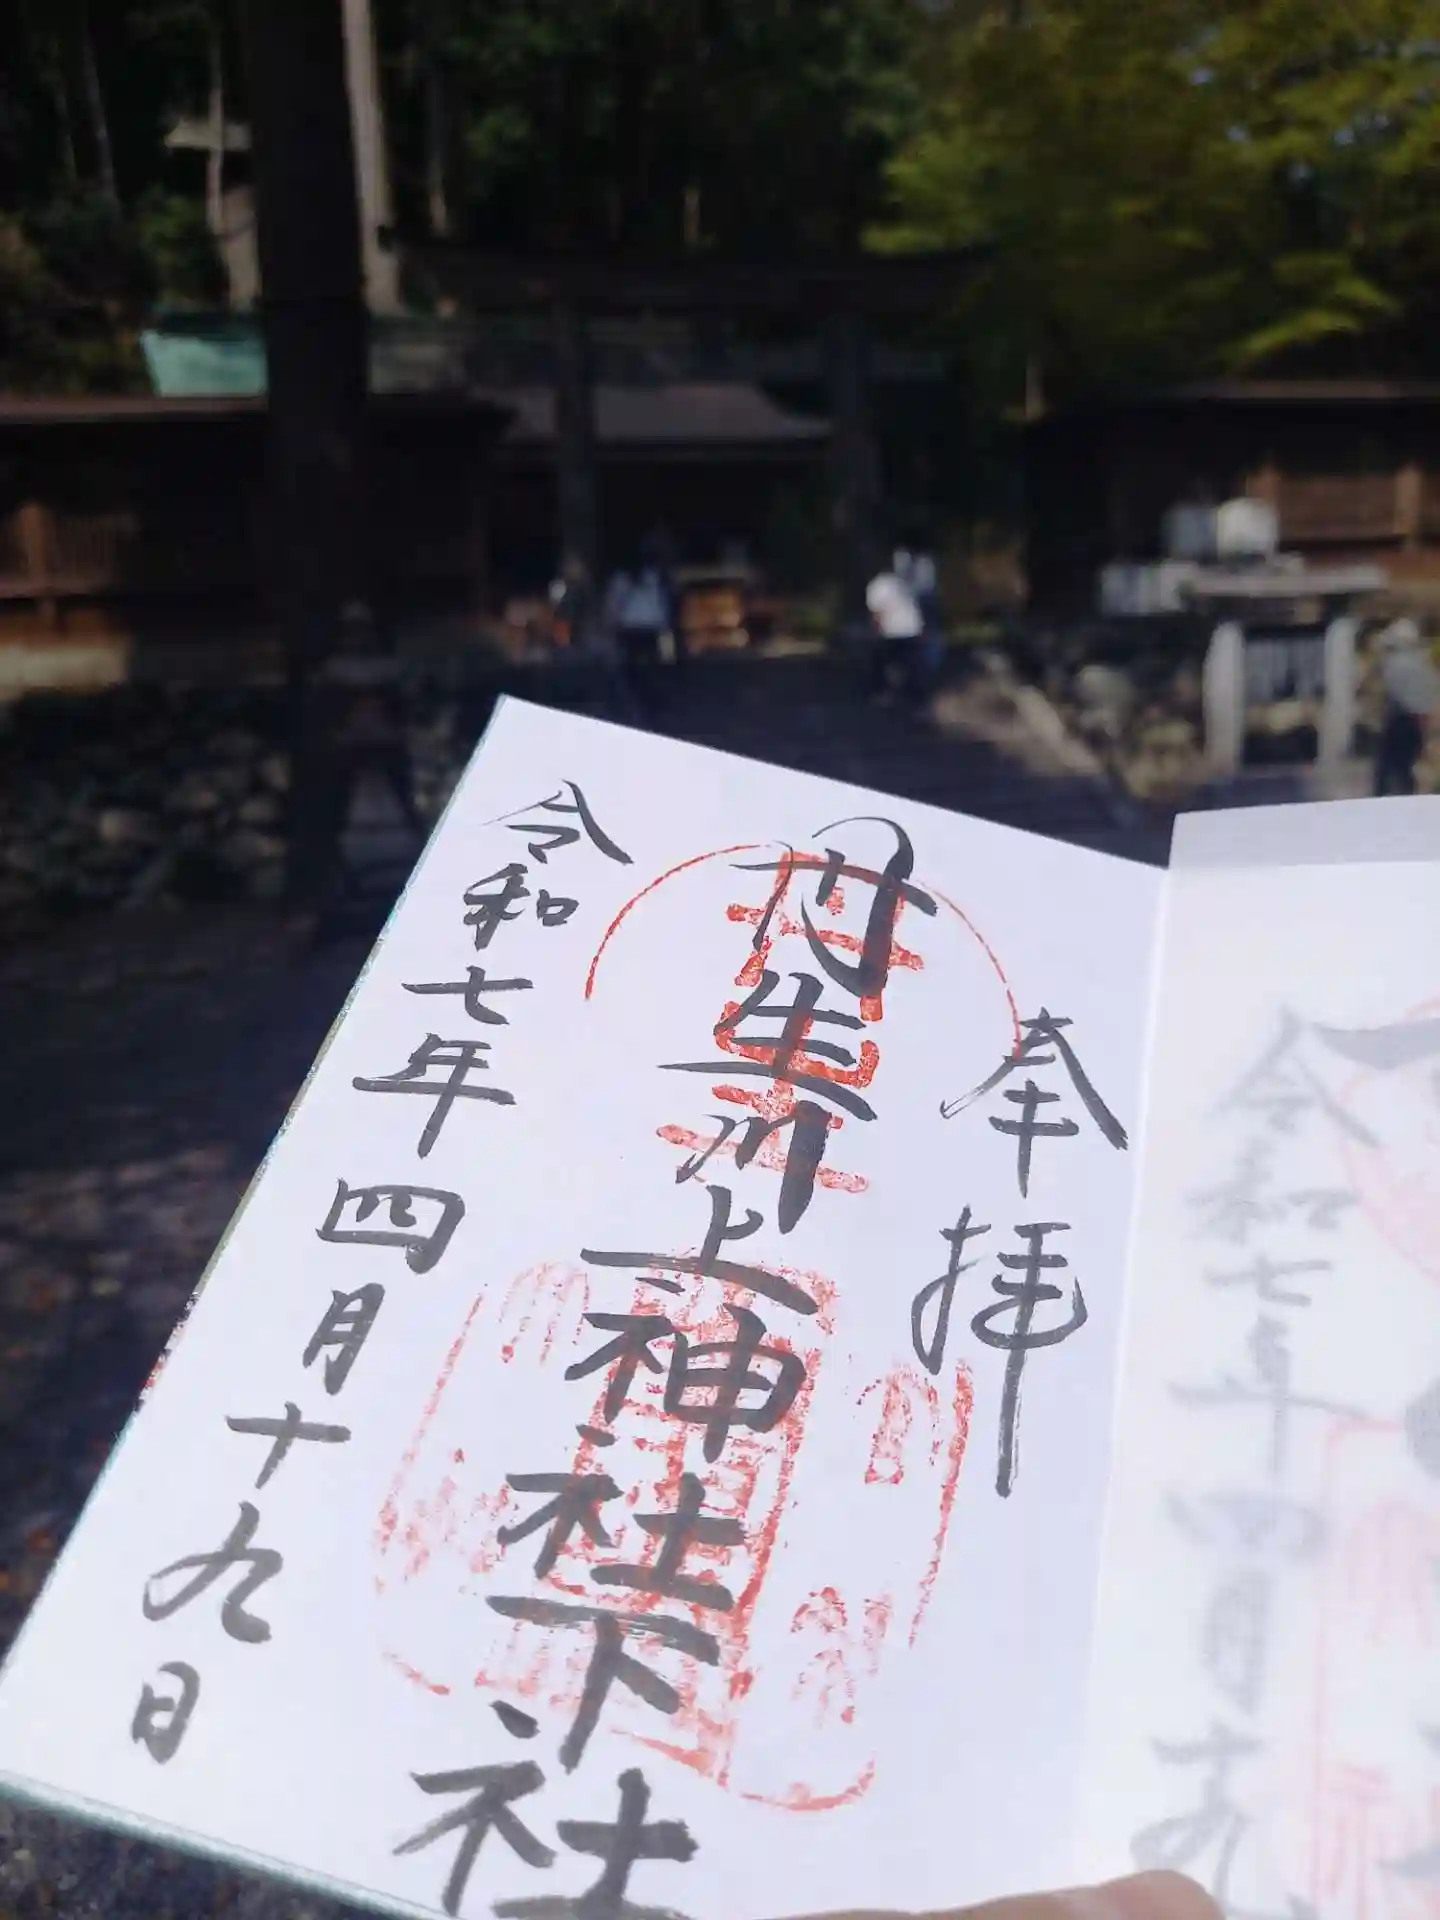 奉拝
丹生川上神社下社
令和七年四月十九日
令和七年四月十九